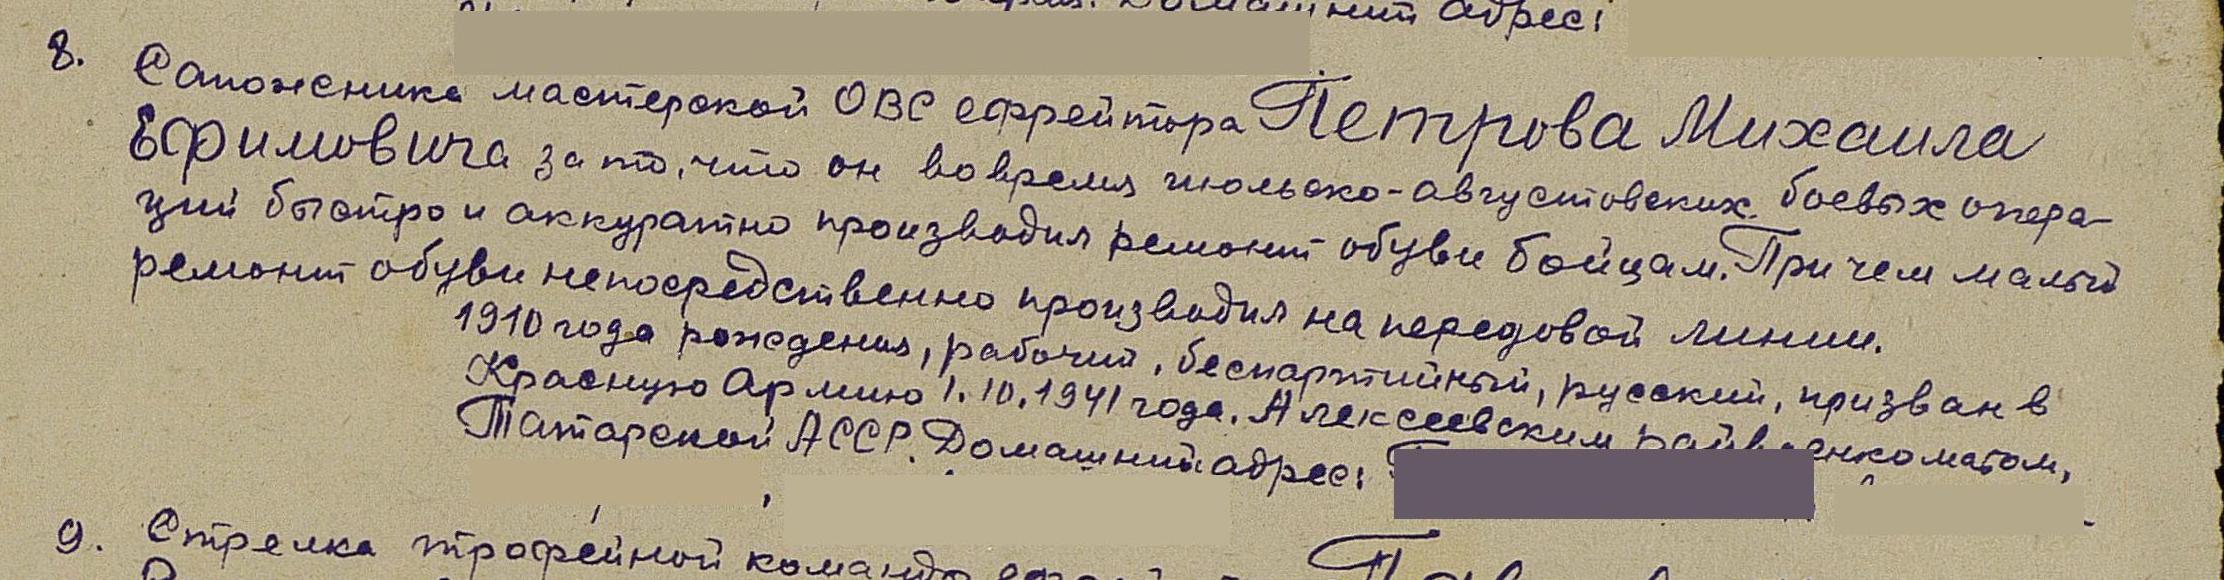 Домашний адрес:
8. Сапожника мастерской ОВС ефрейтора Петрова Михаила
Ефимовича за то, что он во время июльско-августовских боевых опера-
ций быстро и аккуратно производил ремонт обуви бойцам. При чем малый
ремонт обуви непосредственно производил на передовой линии.
1910 года рождения, рабочий, беспартийный, русский, призван в
Красную Армию 1.10.1941 года. Алексеевским райвоенкоматом,
Татарской АССР. Домашний адрес:
9. Стрелка трофейной команды